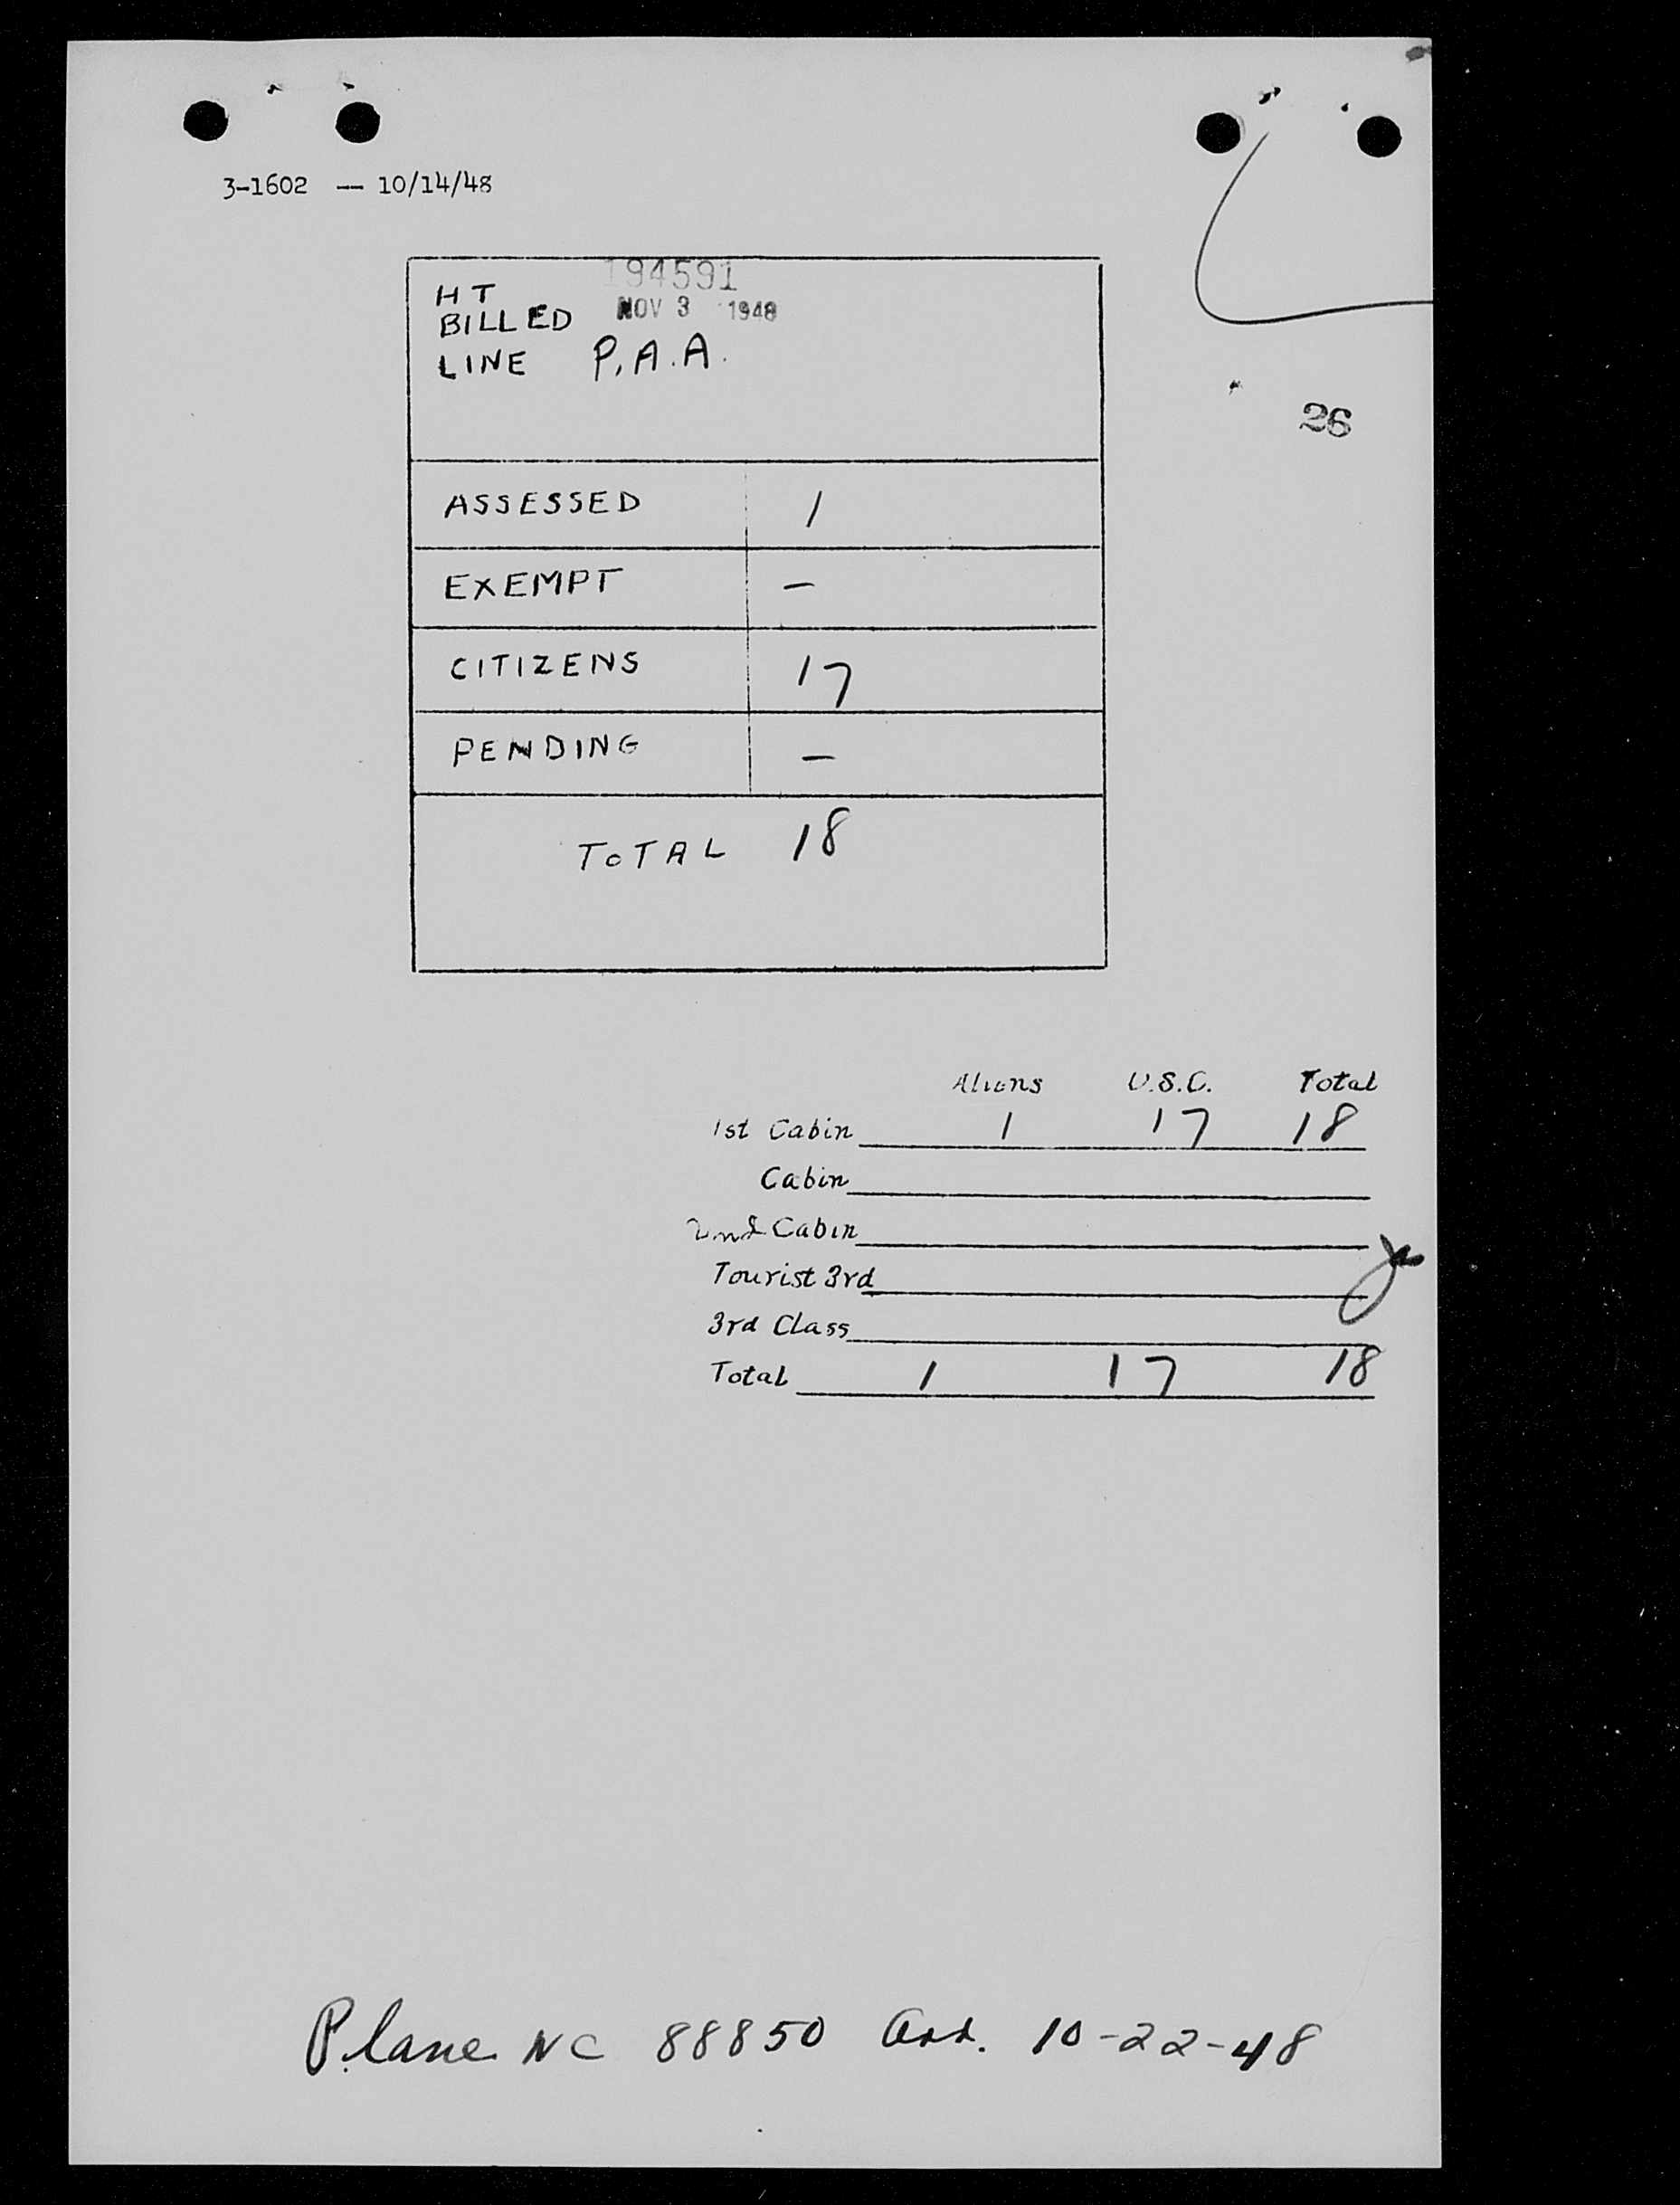 3-1602 — 10/14/48
194591
HT
BILLED NOV 3 1948
LINE P.A.A.
26
ASSESSED 1
EXEMPT —
CITIZENS 17
PENDING —
TOTAL 18
Aliens U.S.C. Total
1st Cabin 1 17 18
Cabin
2nd Cabin
Tourist 3rd
3rd Class
Total 1 17 18
Plane NC 88850 Arr. 10-22-48